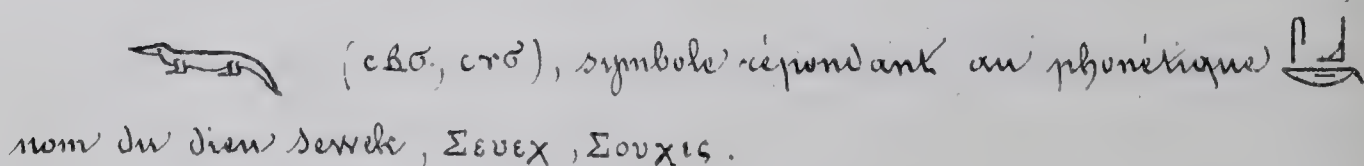 𓆊 (ⲥⲃϭ, ), symbole répondant au phonétique 𓋴𓃀𓎡
nom du dieu Sewek, Σευεχ, Σουχις.